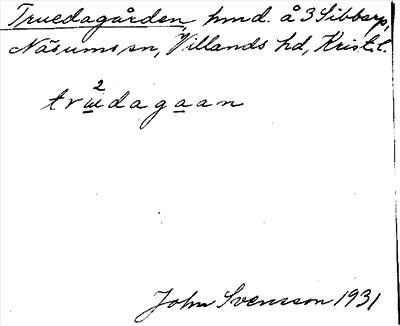 Truedagården, hmd. å 3 Sibbarp,
Näsums sn, Villands hd, Krist. l.
2
truedagaan
John Svensson 1931